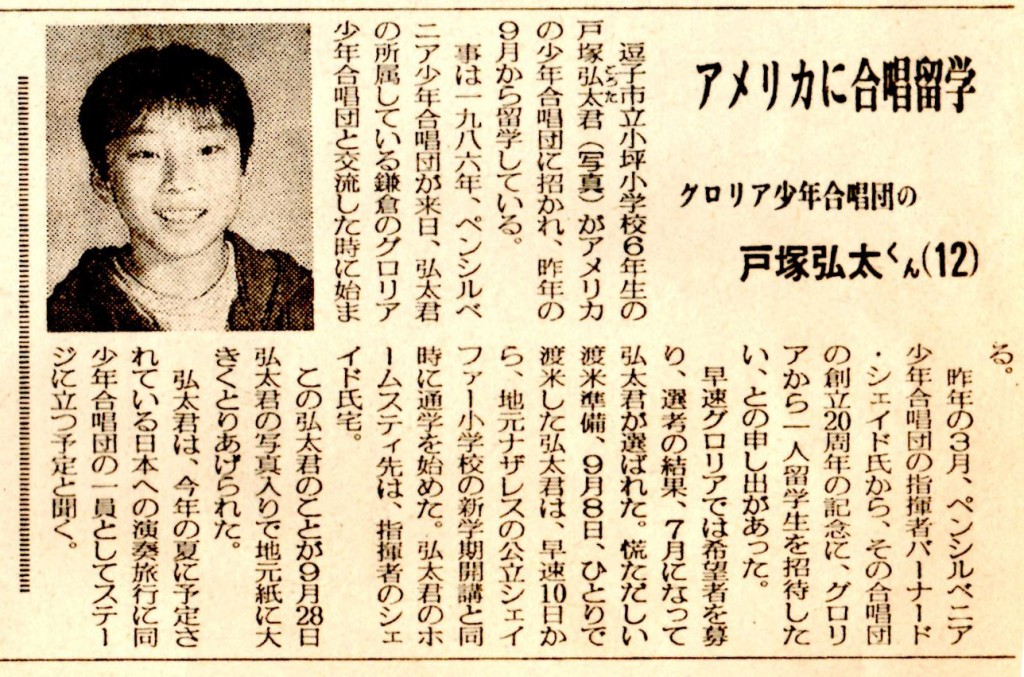 アメリカに合唱留学
グロリア少年合唱団の
戸塚弘太くん(12)
逗子市立小坪小学校6年生の
戸塚弘太君（写真）がアメリカ
の少年合唱団に招かれ、昨年の
9月から留学している。
事は一九八六年、ペンシルベ
ニア少年合唱団が来日、弘太君
の所属している鎌倉のグロリア
少年合唱団と交流した時に始ま
る。
昨年の3月、ペンシルベニア
少年合唱団の指揮者バーナード
・シェイド氏から、その合唱団
の創立20周年の記念に、グロリ
アから一人留学生を招待した
い、との申し出があった。
早速グロリアでは希望者を募
り、選考の結果、7月になって
弘太君が選ばれた。慌ただしい
渡米準備、9月8日、ひとりで
渡米した弘太君は、早速10日か
ら、地元ナザレスの公立シェイ
ファー小学校の新学期開講と同
時に通学を始めた。弘太君のホ
ームスティ先は、指揮者のシェ
イド氏宅。
この弘太君のことが9月28日
弘太君の写真入りで地元紙に大
きくとりあげられた。
弘太君は、今年の夏に予定さ
れている日本への演奏旅行に同
少年合唱団の一員としてステー
ジに立つ予定と聞く。